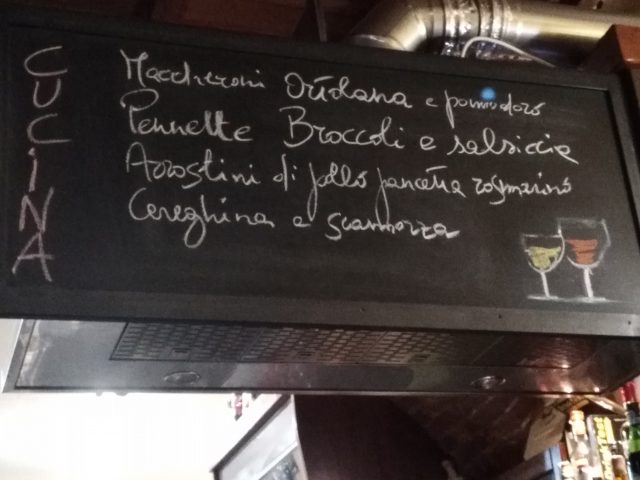 CUCINA
Maccheroni Ortolana e pomodoro
Pennette Broccoli e salsiccia
Arrostini di pollo pancetta rosmarino
Cereghina e scamorza